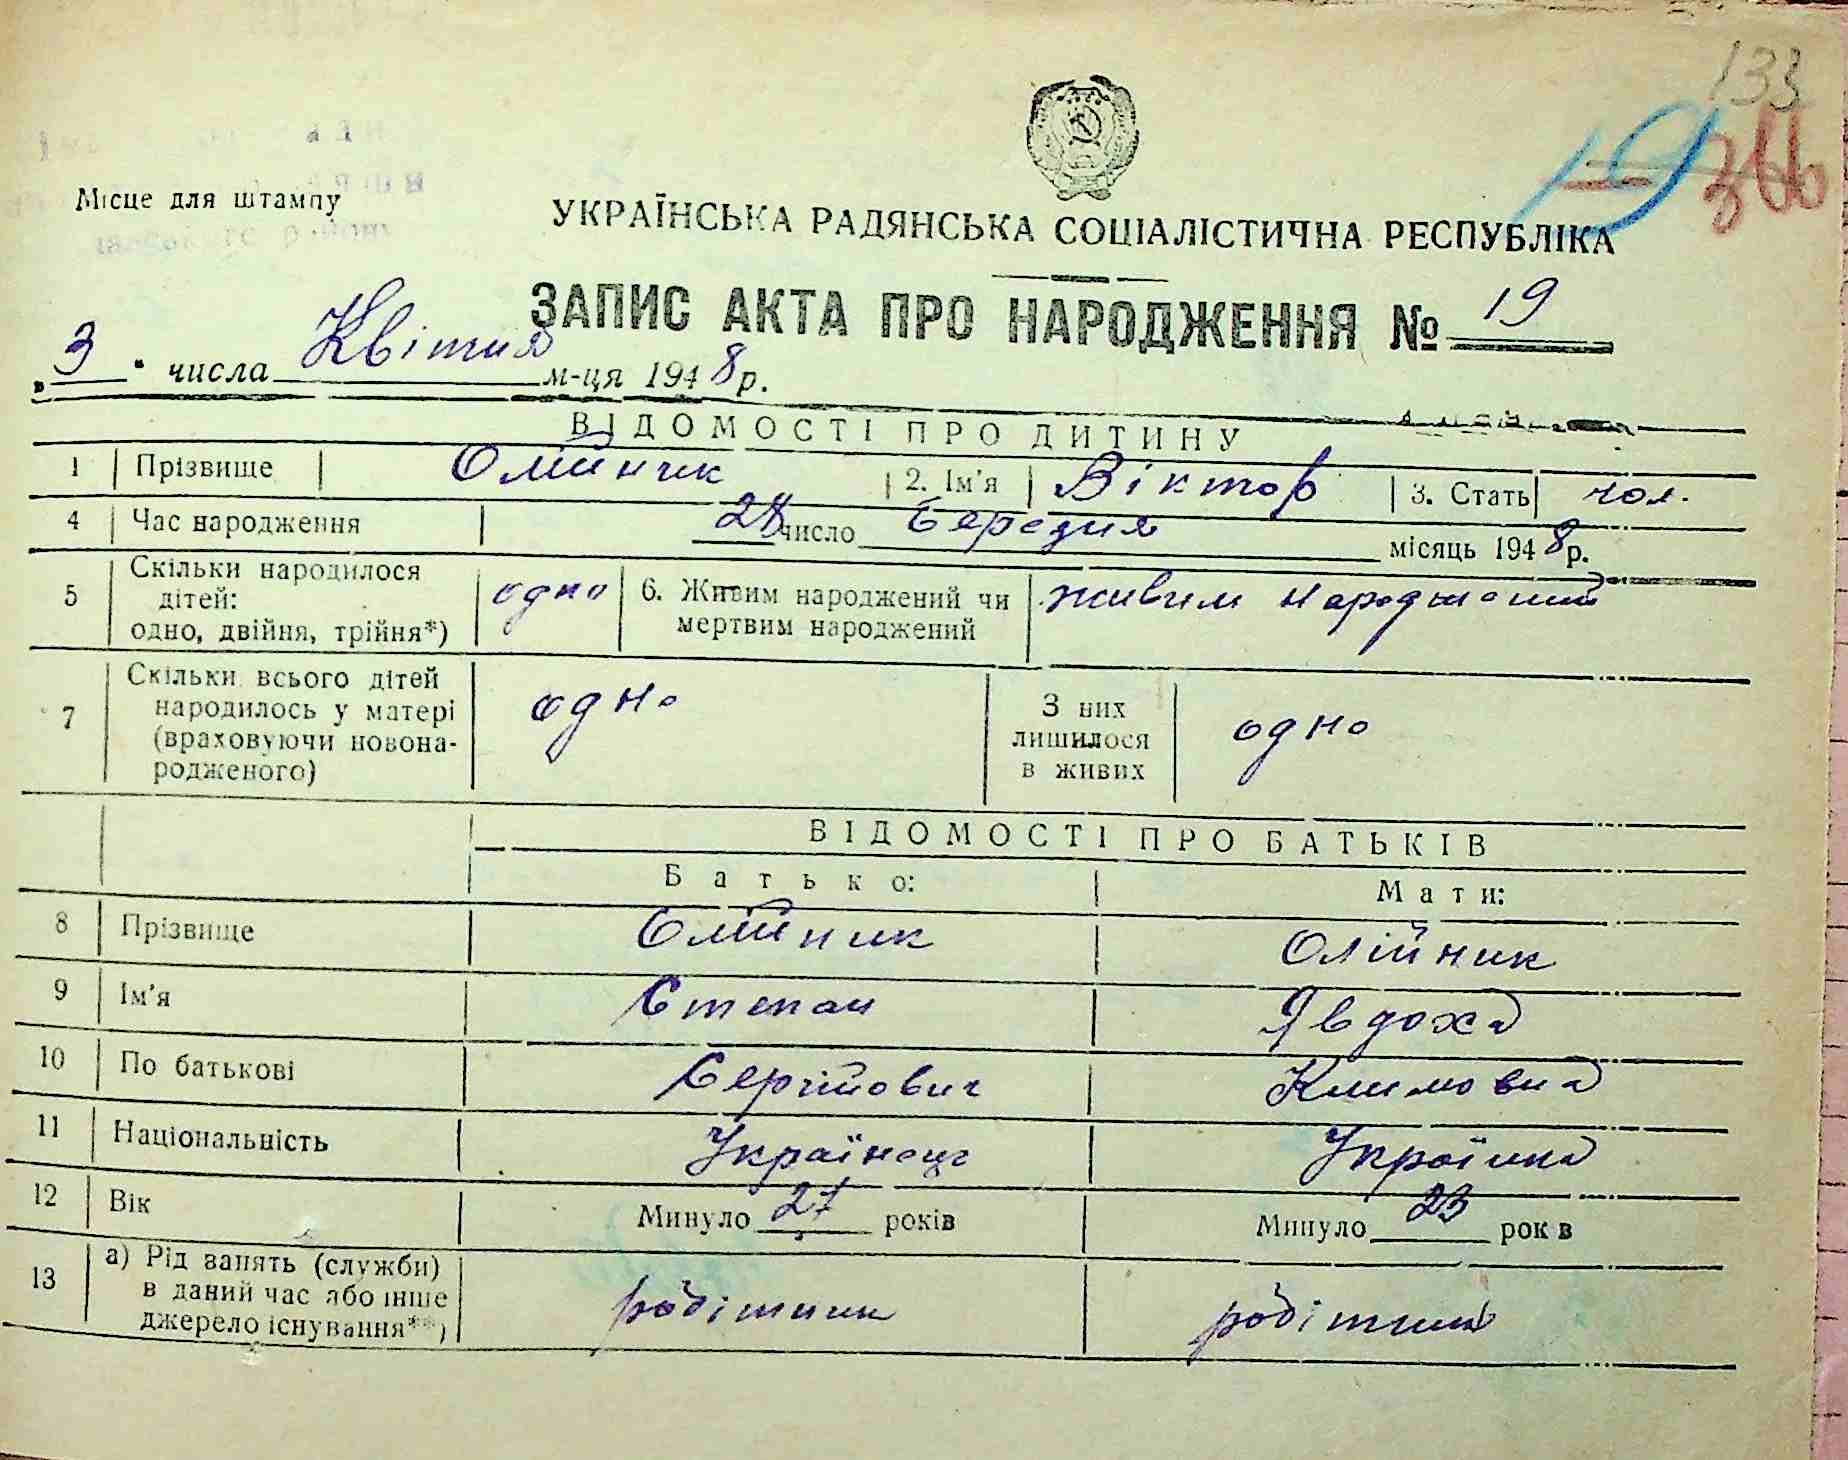 133
19 366
Місце для штампу
УКРАЇНСЬКА РАДЯНСЬКА СОЦІАЛІСТИЧНА РЕСПУБЛІКА
ЗАПИС АКТА ПРО НАРОДЖЕННЯ № 19
„3" числа Квітня м-ця 1948 р.
ВІДОМОСТІ ПРО ДИТИНУ
1 Прізвище Олійник 2. Ім'я Віктор 3. Стать чол.
4 Час народження 28 число Березня місяць 1948 р.
5 Скільки народилося дітей: одно, двійня, трійня*) одно 6. Живим народжений чи мертвим народжений живим народжений
7 Скільки всього дітей народилось у матері (враховуючи новонародженого) одно З них лишилося в живих одно
ВІДОМОСТІ ПРО БАТЬКІВ
Батько: Мати:
8 Прізвище Олійник Олійник
9 Ім'я Степан Явдоха
10 По батькові Сергійович Климовна
11 Національність Українець Українка
12 Вік Минуло 27 років Минуло 23 рок в
13 а) Рід занять (служби) в даний час або інше джерело існування**) робітник робітниця